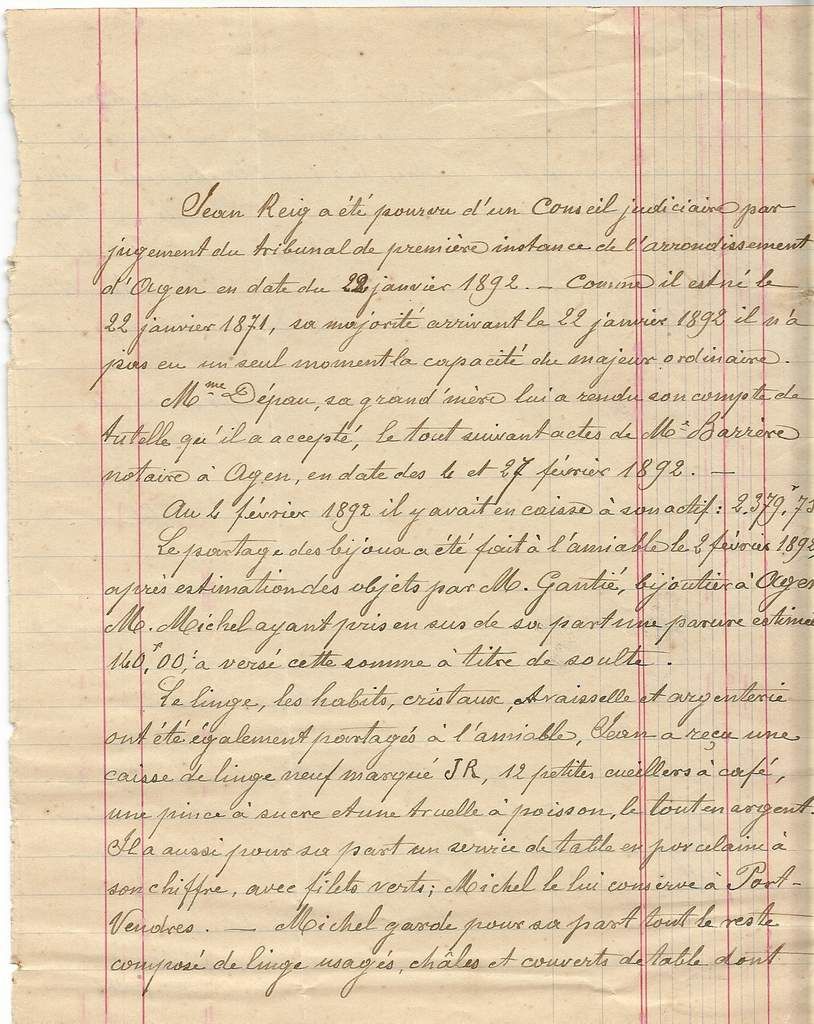 Jean Reig a été pourvu d'un Conseil judiciaire par
jugement du tribunal de première instance de l'arrondissement
d'Agen en date du 22 janvier 1892. — Comme il est né le
22 janvier 1871, sa majorité arrivant le 22 janvier 1892 il n'a
pas eu un seul moment la capacité du majeur ordinaire.
Mme Dépau, sa grand'mère lui a rendu son compte de
tutelle qu'il a accepté, le tout suivant actes de Me Barrère
notaire à Agen, en date des 4 et 27 février 1892. —
Au 4 février 1892 il y avait en caisse à son actif: 2.379,f 73
Le partage des bijoux a été fait à l'amiable le 2 février 1892,
après estimation des objets par M. Gantié, bijoutier à Agen
M. Michel ayant pris en sus de sa part une parure estimée
140,f00, a versé cette somme à titre de soulte.
Le linge, les habits, cristaux, vaisselle et argenterie
ont été également partagés à l'amiable, Jean a reçu une
caisse de linge neuf marqué JR, 12 petites cueillers à café,
une pince à sucre et une truelle à poisson, le tout en argent.
Il a aussi pour sa part un service de table en porcelaine à
son chiffre, avec filets verts; Michel le lui conserve à Port-
Vendres. — Michel garde pour sa part tout le reste
composé de linge usagés, châles et couverts de table dont